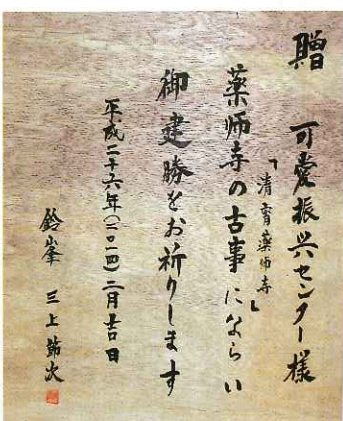 贈 可愛振興センター様
「清霄薬師寺」
薬師寺の古事にならい
御建勝をお祈りします
平成二十六年(二〇一四)二月吉日
鈴峯 三上節次